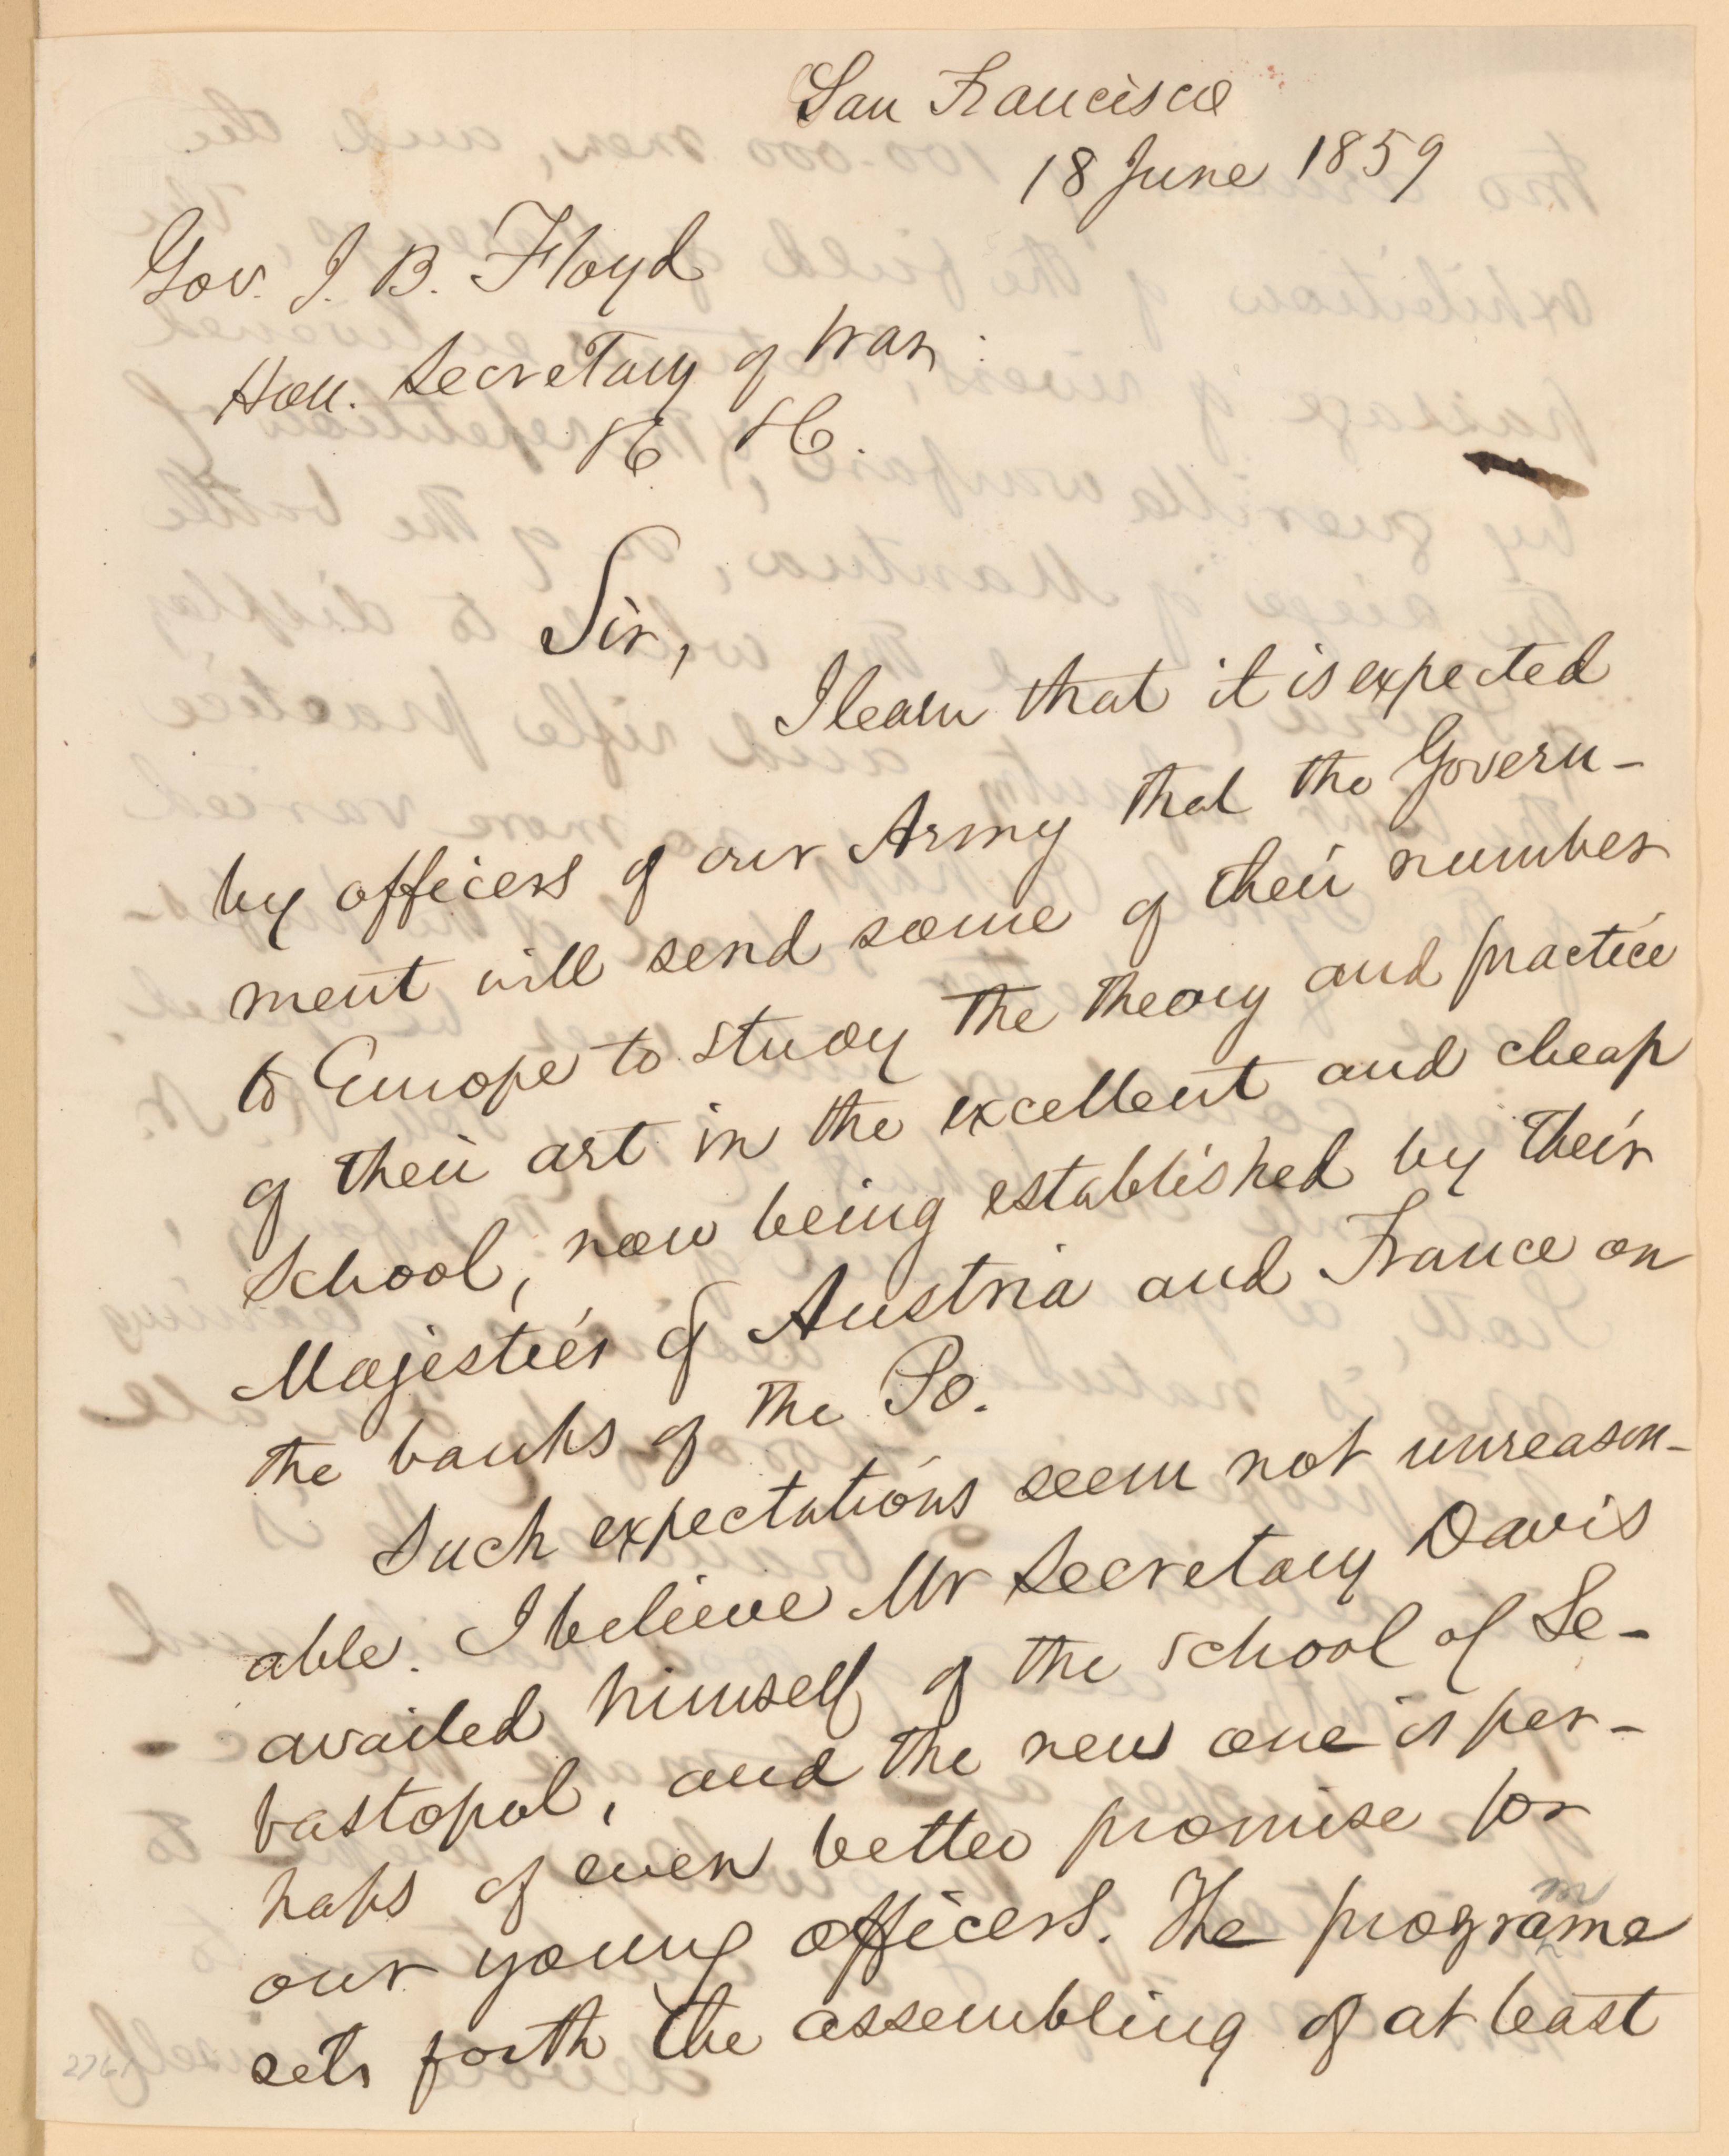 San Francisco
18 June 1859
Gov. J. B. Floyd
Hon. Secretary of War:
Sir,
I learn that it is expected
by officers of our Army that the Govern-
ment will send some of their number
to Europe to study the theory and practice
of their art in the excellent and cheap
School, now being established by their
Majesties of Austria and France on
the banks of the Po.
Such expectations seem not unreason-
able. I believe Mr Secretary Davis
availed himself of the school of Se-
bastopol, and the new one is per-
haps of even better promise for
our young officers. The programe
m
sets forth the assembling of at least